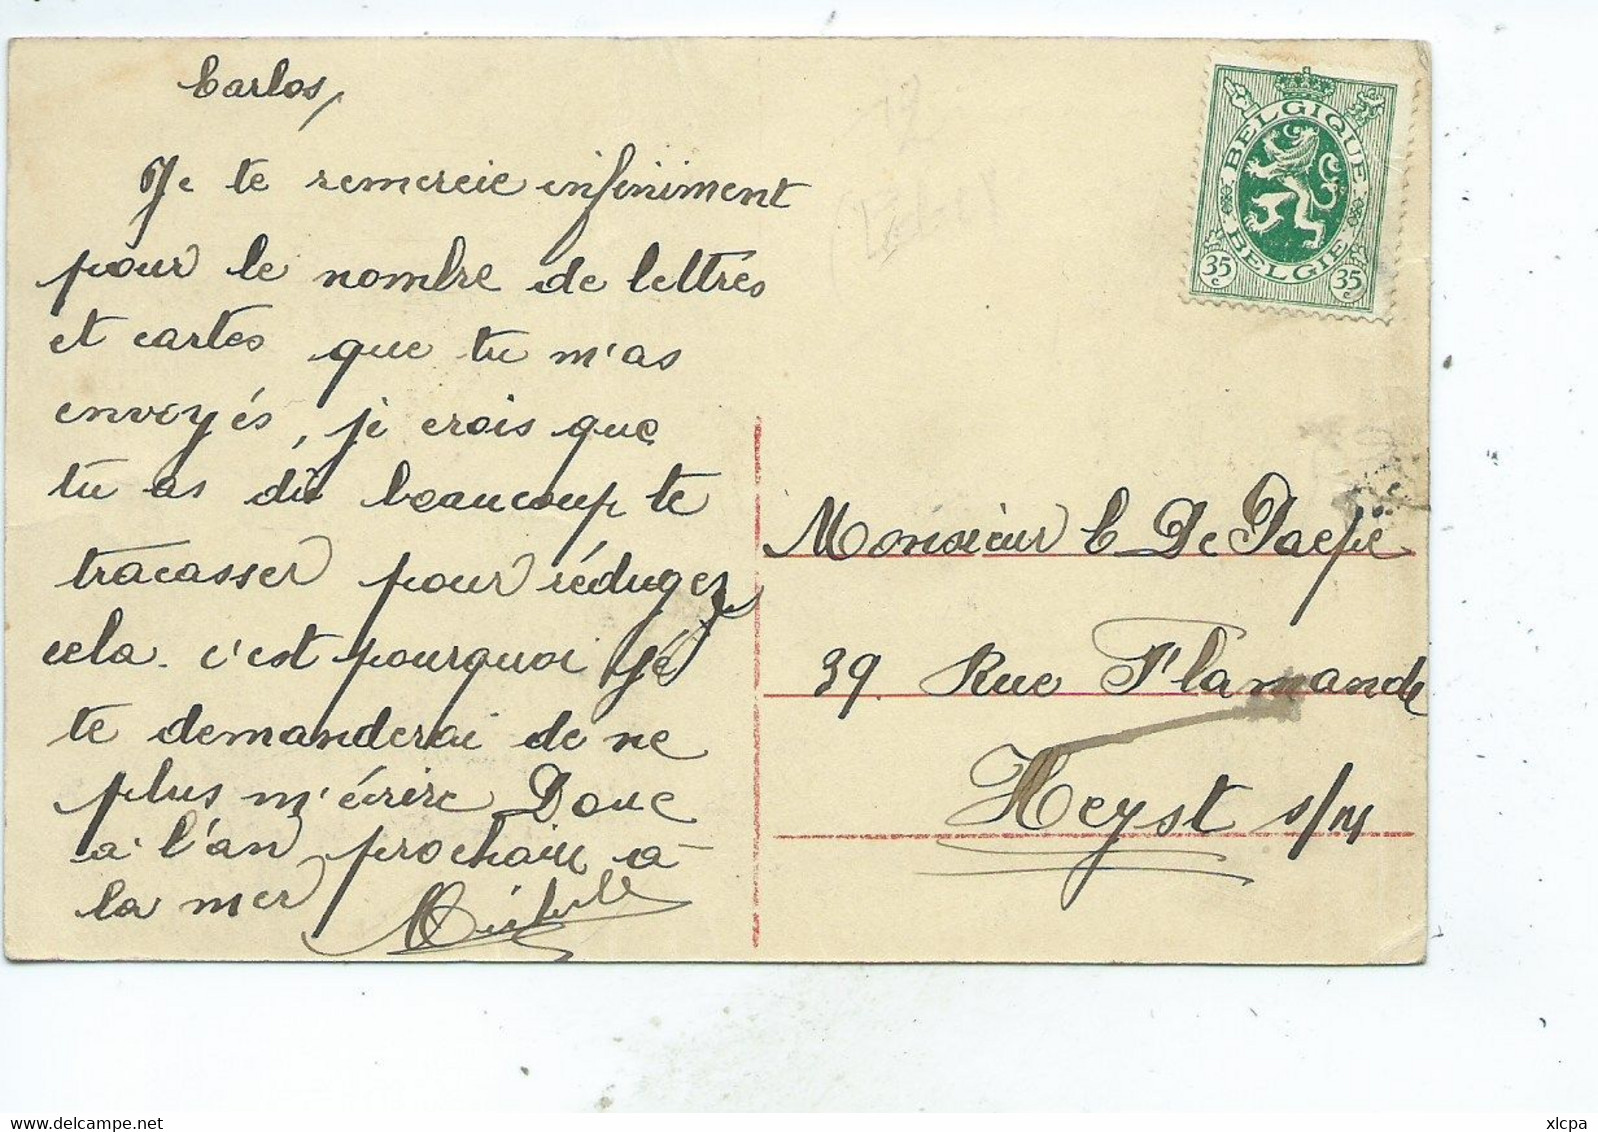 Carlos,
Je te remercie infiniment
pour le nombre de lettres
et cartes que tu m'as
envoyés, je crois que
tu as dû beaucoup te
tracasser pour rédugez
cela. c'est pourquoi je
te demanderai de ne
plus m'écrire Donc
à l'an prochain à
la mer
BELGIQUE
BELGIE
35 c
35 c
Monsieur C De Paepe
39. Rue Flamande
Heyst s/M
xlcpa